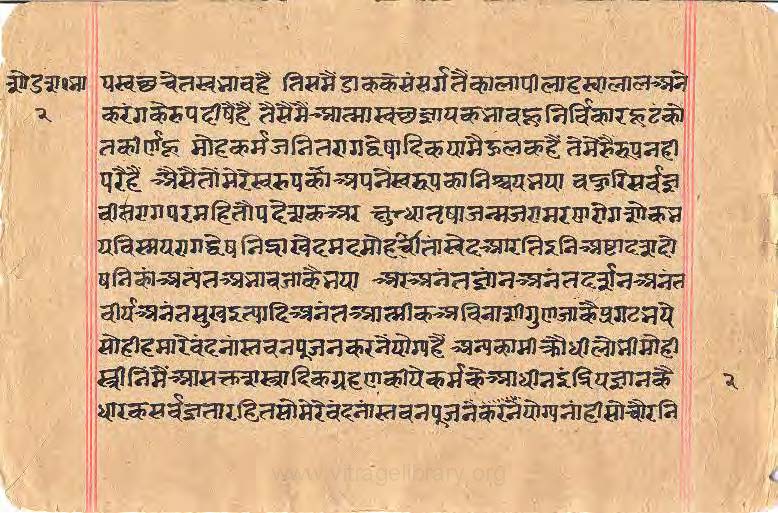 पस्वछचेतस्वभावहै तिसमैडाककेसंसर्गतैकालापीलाहस्यालालअने
करंगकेरुपदीषैहै तैसैमैआत्मास्वछज्ञायकभावहूनिर्विकारहूटंको
तकीर्णहू मोहकर्मजनितरागद्वेषादिकयामैऊलकहैं तेमेरैरुपनही
परैहैं अैसैतोमेरेस्वरुपकोअपनेस्वरुपकानिश्चयभया वहुरिसर्वज्ञ
वीतरागपरमहितोपदेशकअर क्षुत्धातृषाजन्मजरामरणरोगशोकभ
यविस्मयरागद्वेषनिद्राखेदमदमोहचींतास्वेदअरतिइनिअष्टादशदो
षनिकाअत्यंतअभावजाकैभया अरअनंतज्ञानअनंतदर्शनअनंत
वीर्यअनंतसुखइत्यादिअनंतआत्मीकअविनाशीगुणजाकैप्रगटभये
सोहीहमारेवंदनांस्तवनपूजनकरनेयोग्यहैं अन्यकामीक्रोधीलोभीमोही
स्त्रीनिमैंआसक्तशस्त्रादिकग्रहणकीयेकर्मकेआधीनइंद्रियज्ञानकै
धारकसर्वज्ञतारहितसोमेरेवंदनांस्तवनपूजनेकरनैयोग्यनांहीसोचौरनि
२
२
www.vitragelibrary.org